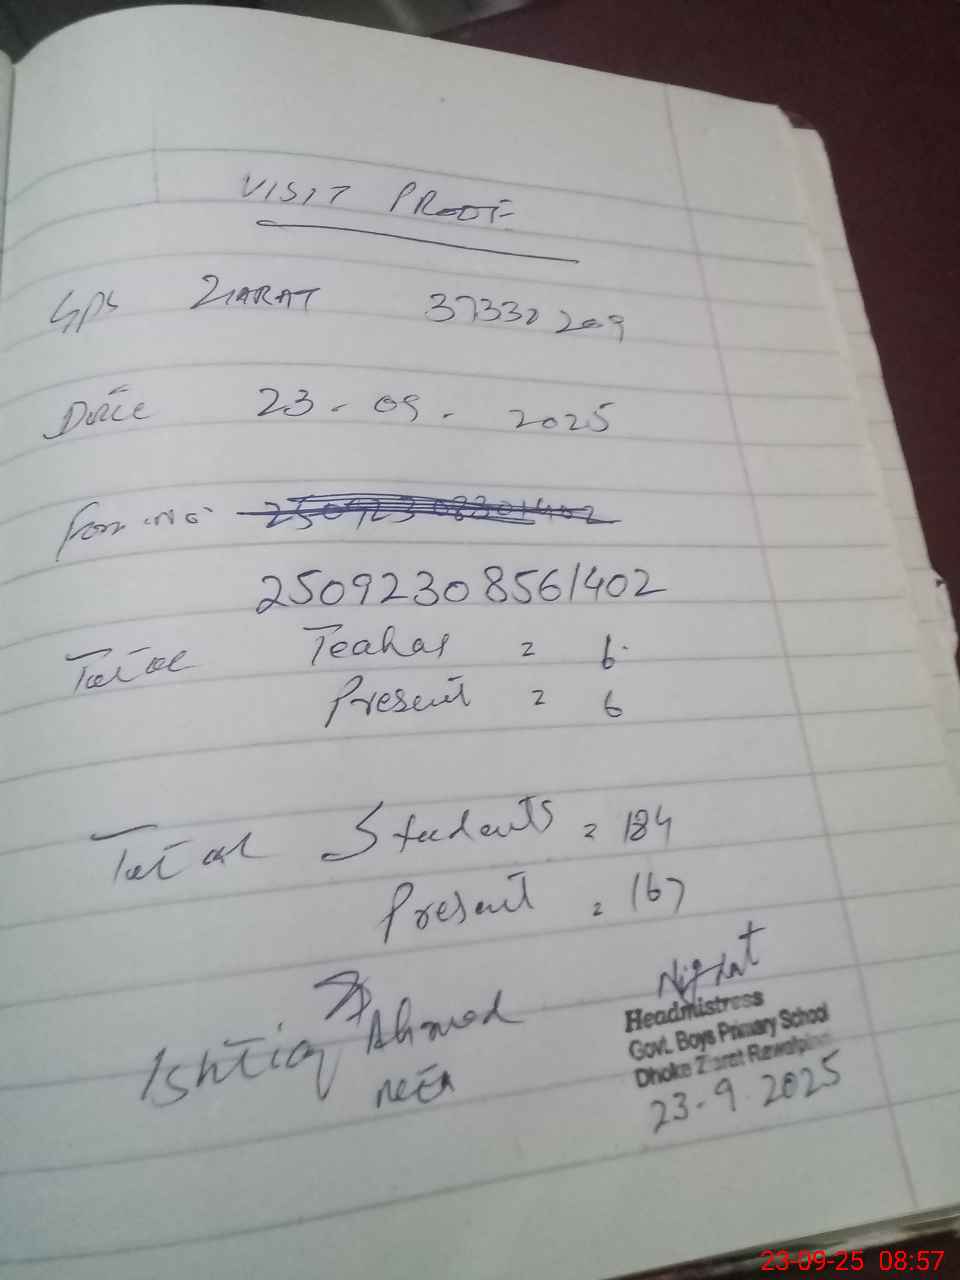 VISIT PROOF
GPS ZIARAT 37330209
Date 23-09-2025
Form No. 25092308301402
25092308561402
Total Teahas = 6
Present = 6
Total Students = 184
Present = 167
Nighat
Ishtiaq Ahmad
MEA
Headmistress
Govt. Boys Primary School
Dhoke Ziarat Rawalpindi
23-9-2025
23-09-25 08:57